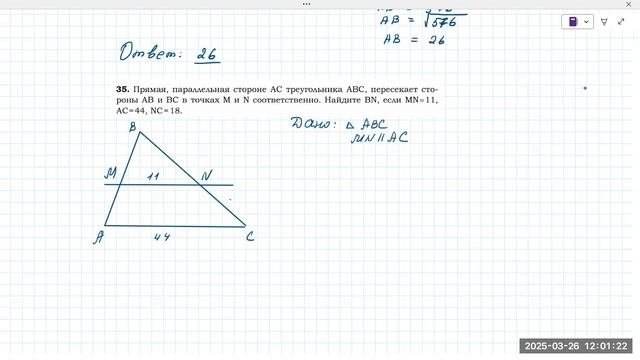 AB = √576
AB = 26
Ответ: 26
35. Прямая, параллельная стороне AC треугольника ABC, пересекает сто-
роны AB и BC в точках M и N соответственно. Найдите BN, если MN=11,
AC=44, NC=18.
Дано: △ ABC
MN || AC
B
M 11 N
A 44 C
2025-03-26 12:01:22